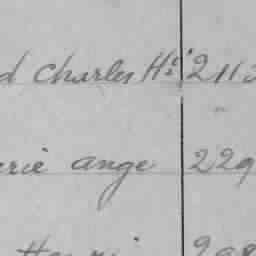 d Charles Hri 2113
erie ange 229
Henri 298